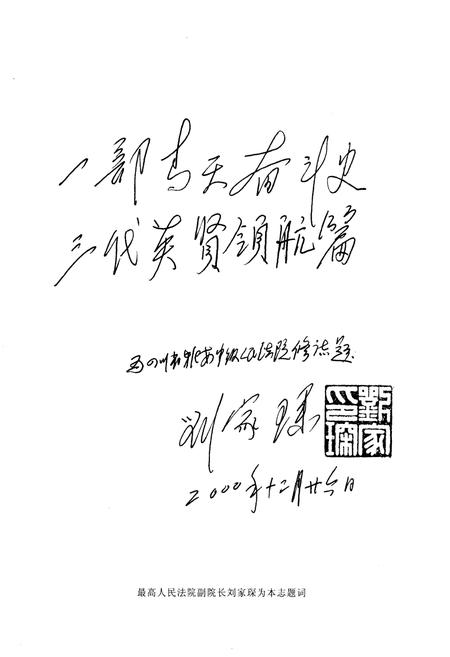 一部青天奋斗史
三代英賢領航篇
为四川省雅安中级人民法院修志题
刘家琛
劉家琛印
2000年十二月廿六日
最高人民法院副院长刘家琛为本志题词